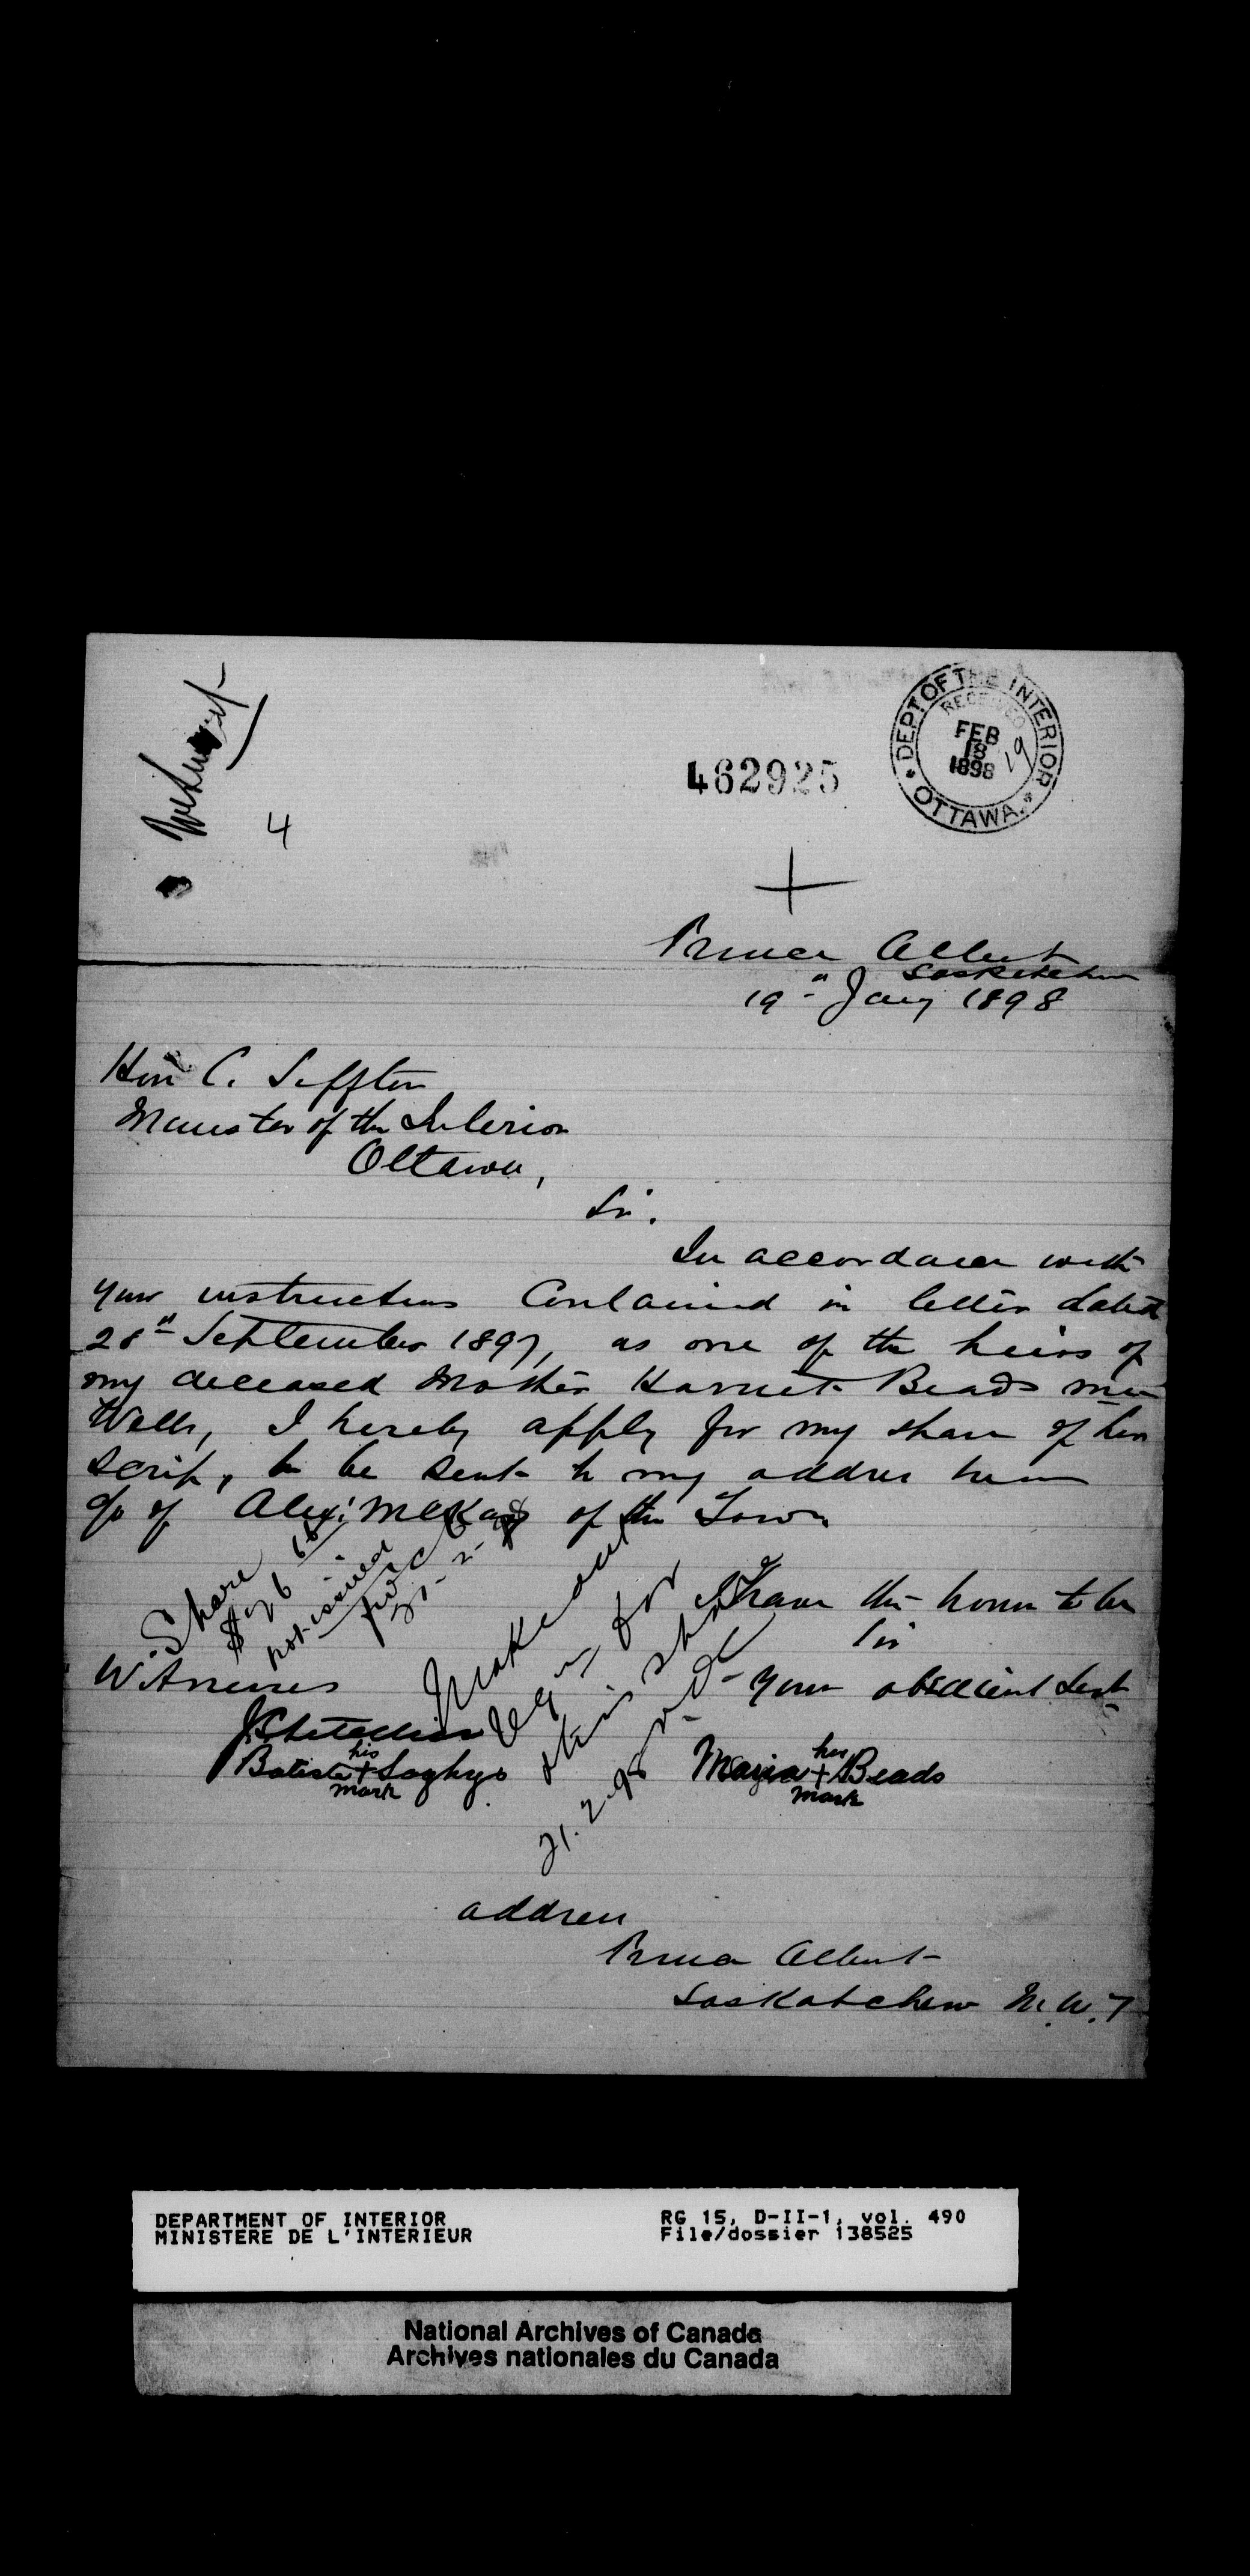 DEPT OF THE INTERIOR
RECEIVED
FEB
18
1898
19
OTTAWA.
462925
4
Prince Albert
Saskatchewan
19th Jany 1898
Hon C. Siffton
Minister of the Interior
Ottawa,
Sir.
In accordance with
your instructions contained in letter dated
28th September 1897, as one of the heirs of
my deceased Mother Harriet Beads née
Wells, I hereby apply for my share of her
scrip, to be sent to my address here
c/o of Alex: McKay of the Town
I have the honor to be
Sir
Your obedient Servt
Witnesses
Batiste his + mark
Maria her + mark Beads
Share
not issued
Make out
for
this share
21.2.98
address
Prince Albert
Saskatchewan N.W.T
DEPARTMENT OF INTERIOR
MINISTERE DE L'INTERIEUR
RG 15, D-II-1, vol. 490
File/dossier 138525
National Archives of Canada
Archives nationales du Canada